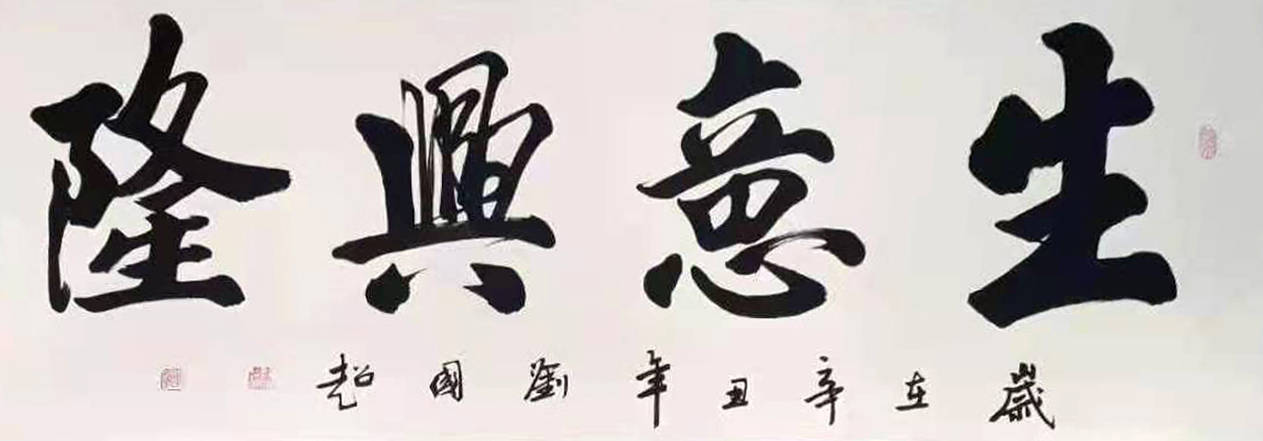 生意興隆
歳在辛丑年劉國超